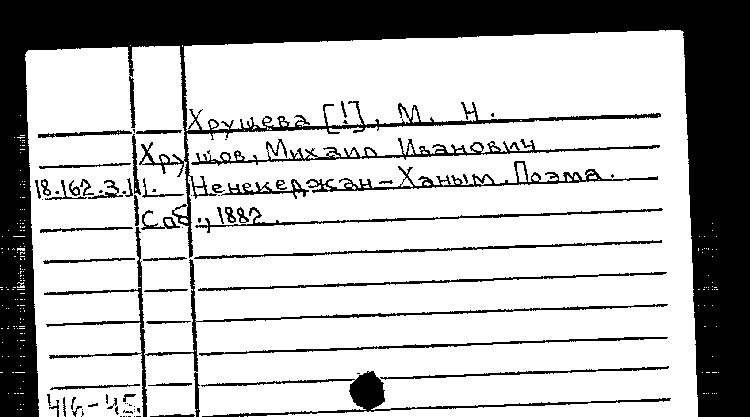 Хрущева [!], М. Н.
Хрущов, Михаил Иванович
18.162.3.11. Ненекеджан-Ханым. Поэма.
Спб., 1882.
416-45